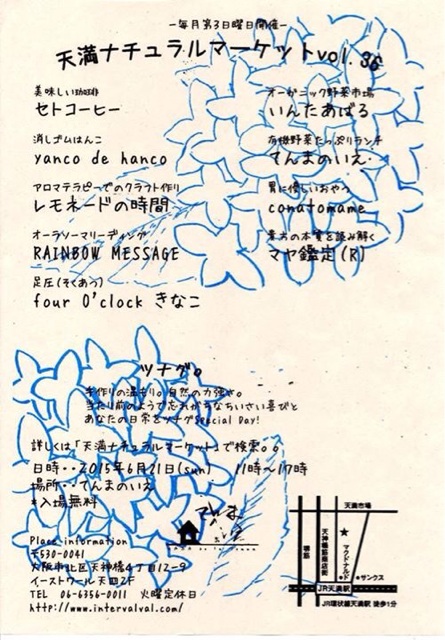 -毎月第3日曜日開催-
天満ナチュラルマーケットvol.36
美味しい珈琲
セトコーヒー
消しゴムはんこ
yanco de hanco
アロマテラピーでのクラフト作り
レモネードの時間
オーラソーマリーディング
RAINBOW MESSAGE
足圧(そくあつ)
four O'clock きなこ
オーガニック野菜市場
いんたあばる
有機野菜たっぷりランチ
てんまのいえ.
胃に優しいおやつ
conatomame
貴方の本質を読み解く
マヤ鑑定(R)
ツナグ。
手作りの温もり。自然の力強さ。
当たり前のようで忘れがちなちいさい喜びと
あなたの日常をツナグSpecial Day!
詳しくは「天満ナチュラルマーケット」で検索。。
日時・・2015年6月21日(sun) 11時~17時
場所・・てんまのいえ
*入場無料
Place information
〒530-0041
大阪市北区天神橋4丁目12-9
イーストワール天四2F
TEL 06-6356-0011 火曜定休日
http://www.intervalval.com/
天満市場
天神橋筋商店街
堺筋
★
マクドナルド
サンクス
JR天満駅
JR環状線天満駅 徒歩1分